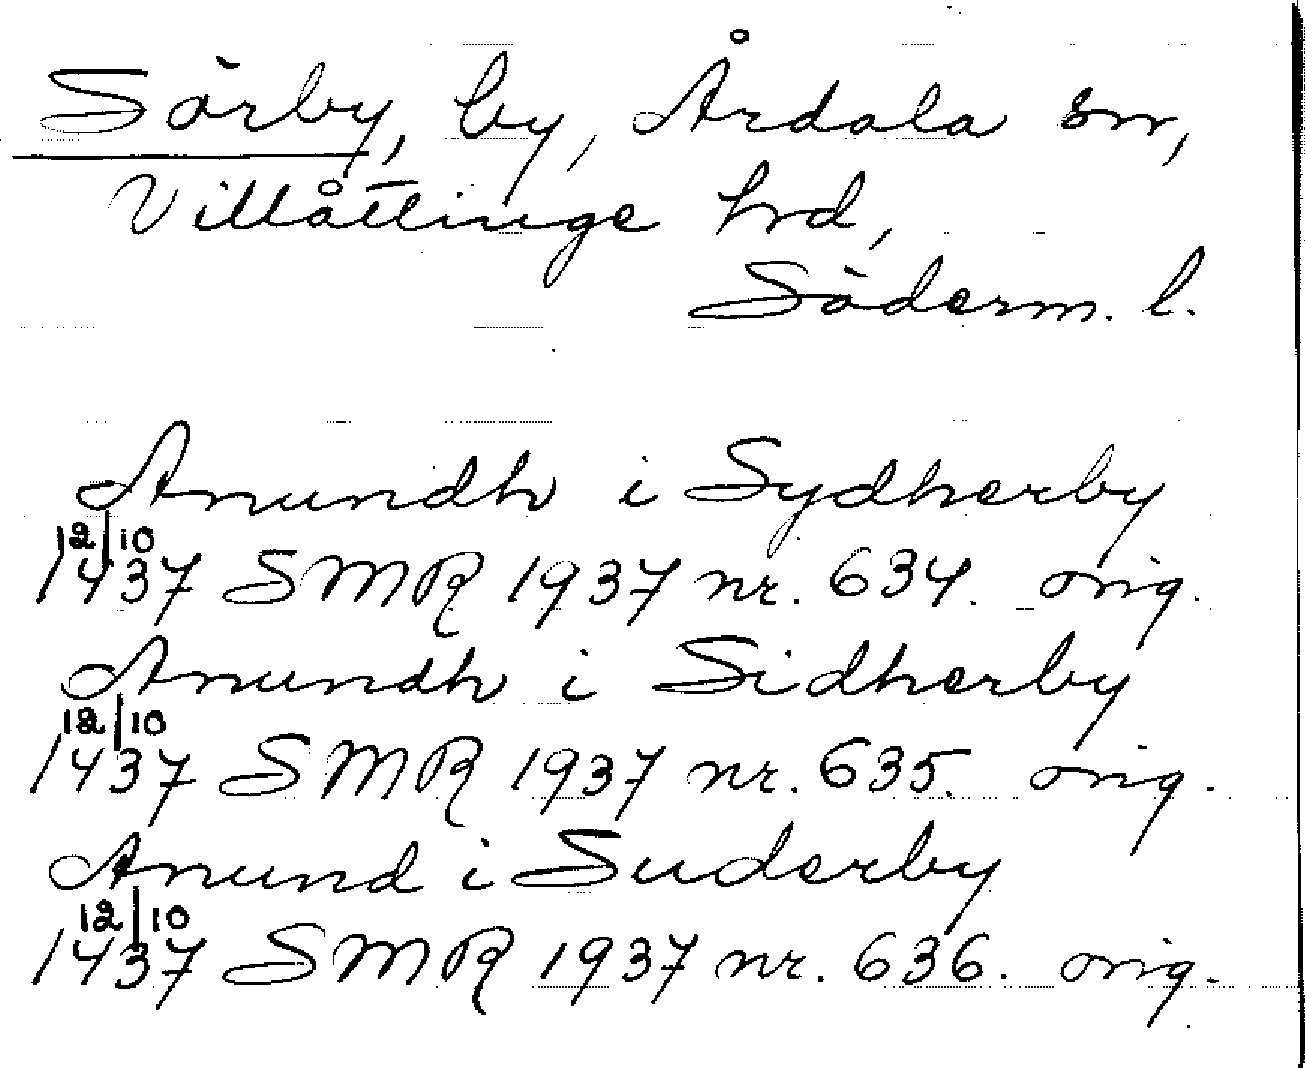 Sörby, by, Årdala sn,
Villåttinge hrd,
Söderm. l.
Anundh i Sydherby
12/10
1437 SMR 1937 nr. 634. orig.
Anundh i Sidherby
12/10
1437 SMR 1937 nr. 635. orig.
Anund i Suderby
12/10
1437 SMR 1937 nr. 636. orig.